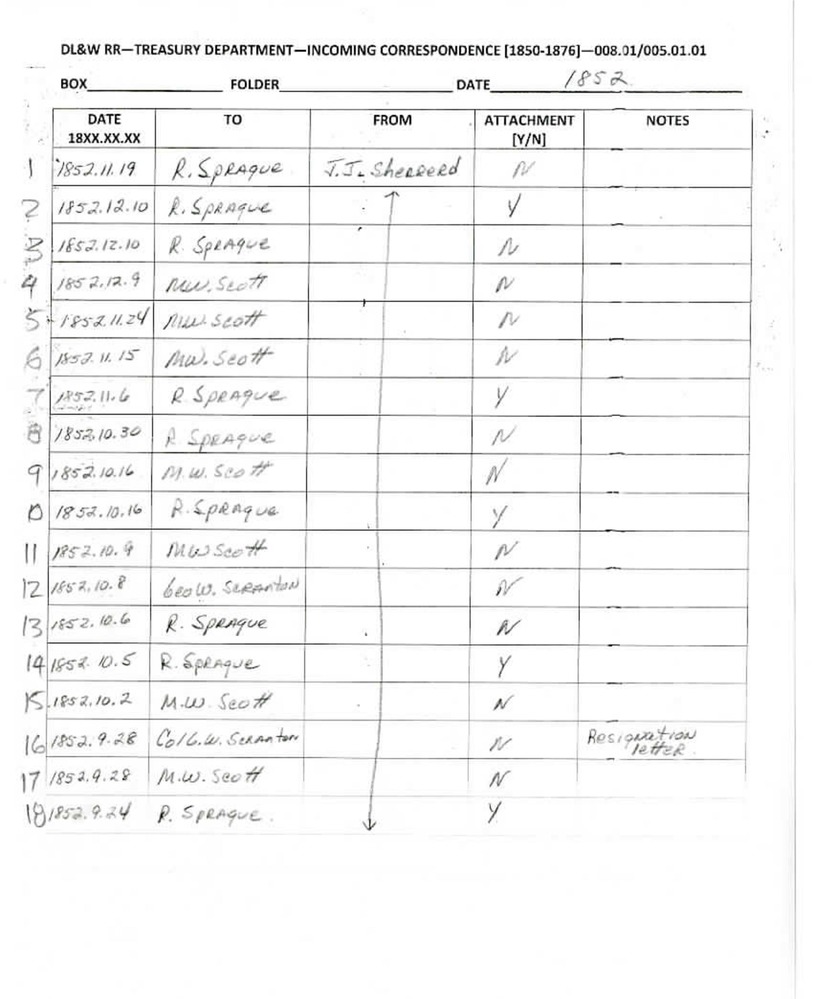 DL&W RR—TREASURY DEPARTMENT—INCOMING CORRESPONDENCE [1850-1876]—008.01/005.01.01
BOX FOLDER DATE 1852
DATE TO FROM ATTACHMENT NOTES
18XX.XX.XX [Y/N]
1 1852.11.19 R. Sprague J.J. Sherrerd N
2 1852.12.10 R. Sprague Y
3 1852.12.10 R Sprague N
4 1852.12.9 M.W. Scott N
5 1852.11.24 M.W. Scott N
6 1852.11.15 M.W. Scott N
7 1852.11.6 R Sprague Y
8 1852.10.30 R Sprague N
9 1852.10.16 M.W. Scott N
10 1852.10.16 R. Sprague Y
11 1852.10.9 MW Scott N
12 1852.10.8 Geo W. Scranton N
13 1852.10.6 R. Sprague N
14 1852.10.5 R. Sprague Y
15 1852.10.2 M.W. Scott N
16 1852.9.28 Col G.W. Scranton N Resignation
letter
17 1852.9.28 M.W. Scott N
18 1852.9.24 R. Sprague. Y